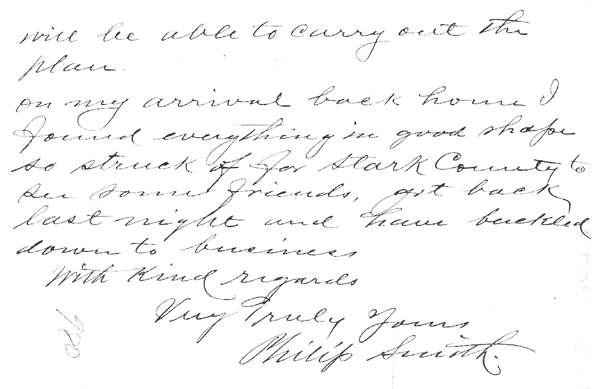 will be able to carry out the
plan.
on my arrival back home I
found everything in good shape
so struck of for Stark County to
see some friends, got back
last night and have buckled
down to business
With Kind regards
Very Truly Yours
Philip Smith.